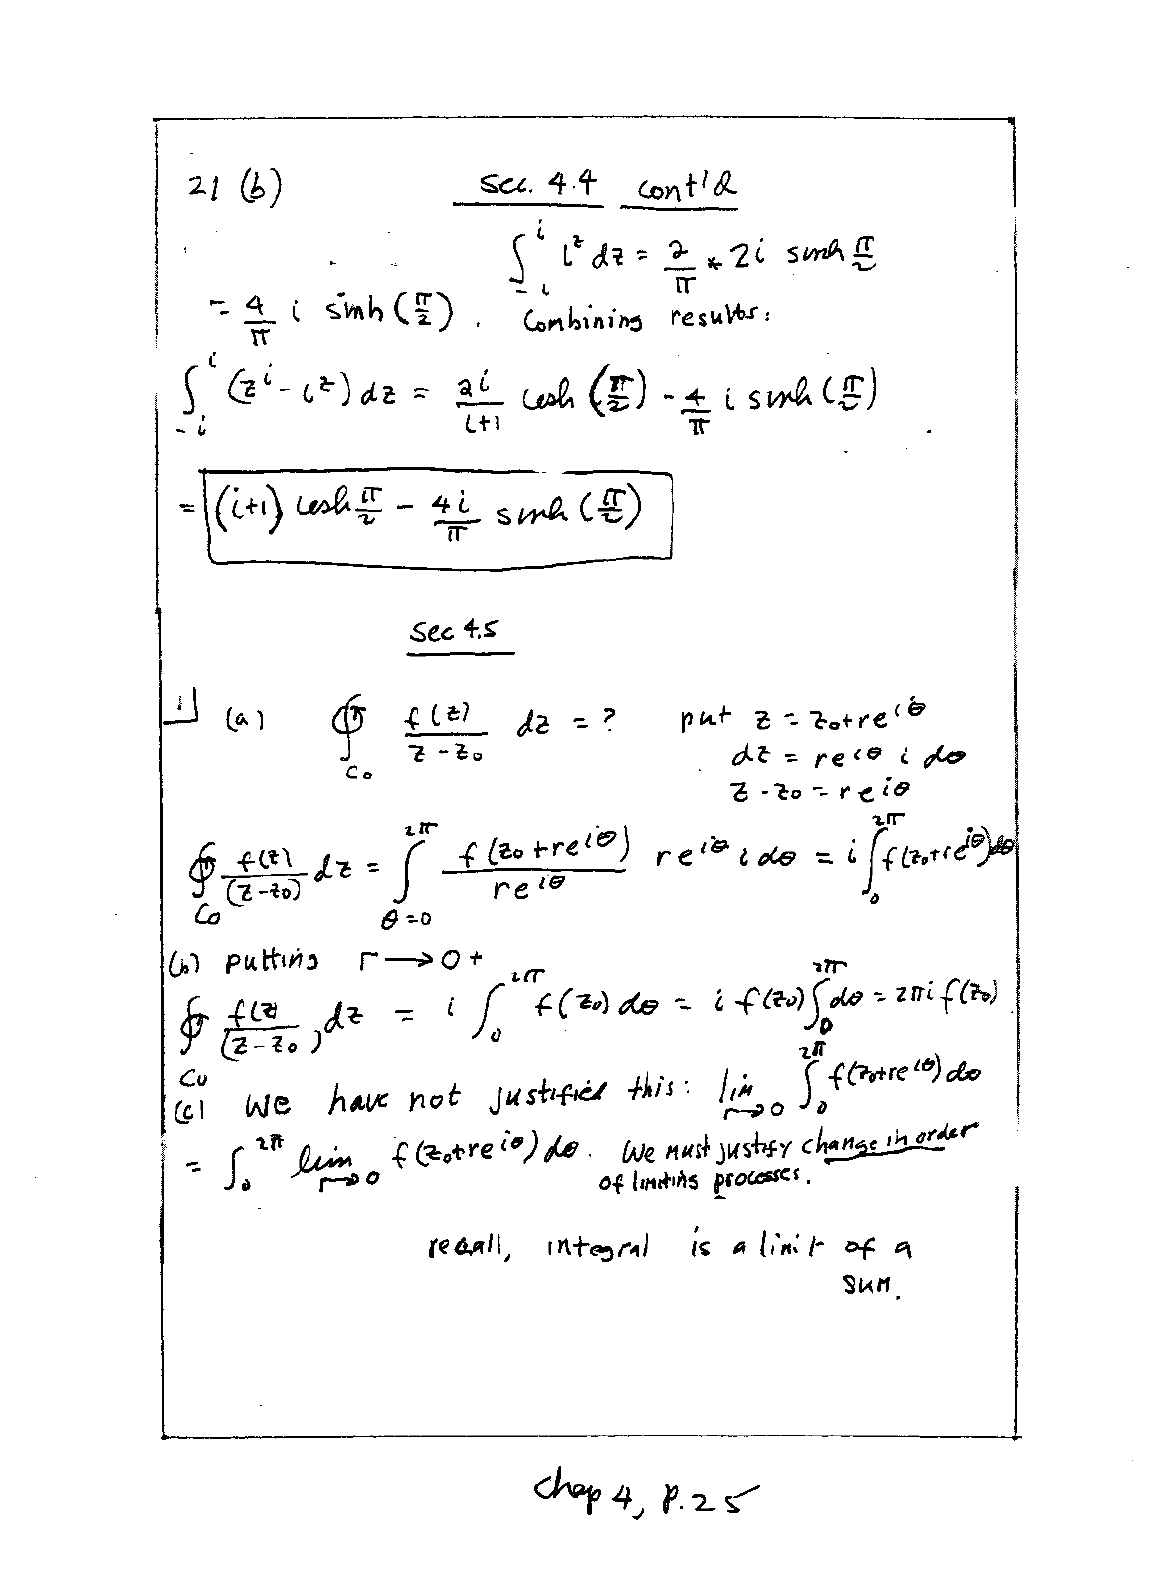 21 (b) Sec. 4.4 cont'd
∫_{-i}^{i} i^z dz = 2/π * 2i sinh π/2
= 4/π i sinh (π/2). Combining results:
∫_{-i}^{i} (z^i - i^z) dz = 2i/(i+1) cosh (π/2) - 4/π i sinh (π/2)
= (i+1) cosh π/2 - 4i/π sinh (π/2)
Sec 4.5
1 (a) ∮_{C0} f(z)/(z-z0) dz = ? put z = z0+re^{iθ}
dz = re^{iθ} i dθ
z-z0 = re^{iθ}
∮_{C0} f(z)/(z-z0) dz = ∫_{θ=0}^{2π} f(z0+re^{iθ})/re^{iθ} re^{iθ} i dθ = i ∫_0^{2π} f(z0+re^{iθ}) dθ
(b) putting r → 0+
∮_{C0} f(z)/(z-z0) dz = i ∫_0^{2π} f(z0) dθ = i f(z0) ∫_0^{2π} dθ = 2πi f(z0)
(c) We have not justified this: lim_{r→0} ∫_0^{2π} f(z0+re^{iθ}) dθ
= ∫_0^{2π} lim_{r→0} f(z0+re^{iθ}) dθ. We must justify change in order
of limiting processes.
recall, integral is a limit of a
sum.
Chap 4, p.25